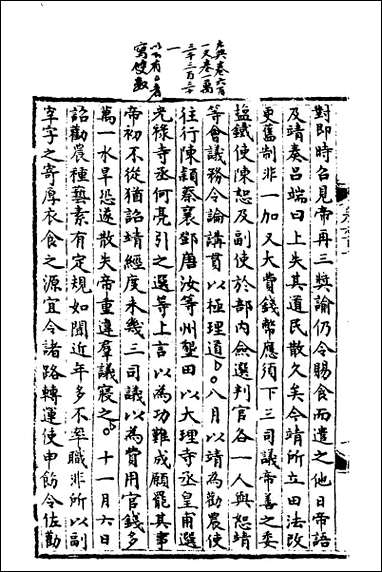 對即時召見帝再三獎諭仍令賜食而遣之他日帝語
及靖奏呂端曰上失其道民散久矣今靖所立田法改
更舊制非一加又大費錢幣應須下三司議帝善之委
塩鐵使陳恕及副使於部內僉選判官各一人與恕靖
等會議務令論講貫以極理道八月以靖為勸農使
往行陳潁蔡襄鄧唐汝等州墾田以大理寺丞皇甫選
光祿寺丞何亮引之選等上言以為功難成願罷其事
帝初不從猶詔靖經度未幾三司議以為費用官錢多
萬一水旱恐遂散失帝重違羣議寢之十一月六日
詔勸農種藝素有定規如聞近年多不率職非所以副
字字之寄厚衣食之源宜令諸路轉運使申飭令佐勸